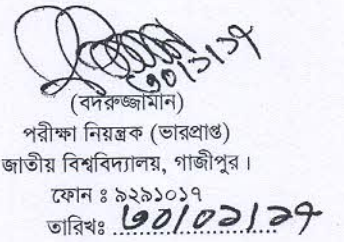 ৩০/১/১৭
(বদরুজ্জামান)
পরীক্ষা নিয়ন্ত্রক (ভারপ্রাপ্ত)
জাতীয় বিশ্ববিদ্যালয়, গাজীপুর।
ফোন ঃ ৯২৯১০১৭
তারিখঃ ৩০/০১/১৭